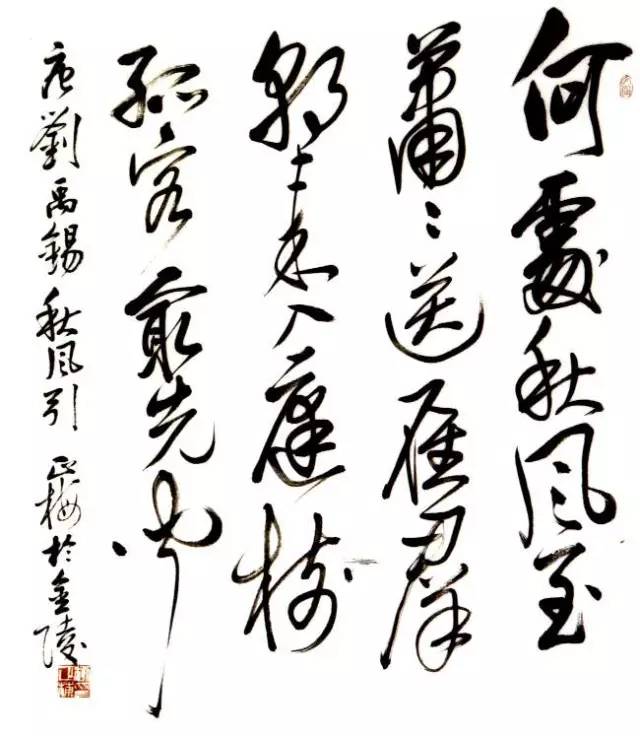 何處秋風至
蕭蕭送雁群
朝來入庭樹
孤客最先聞
唐劉禹錫秋風引 正梅於金陵